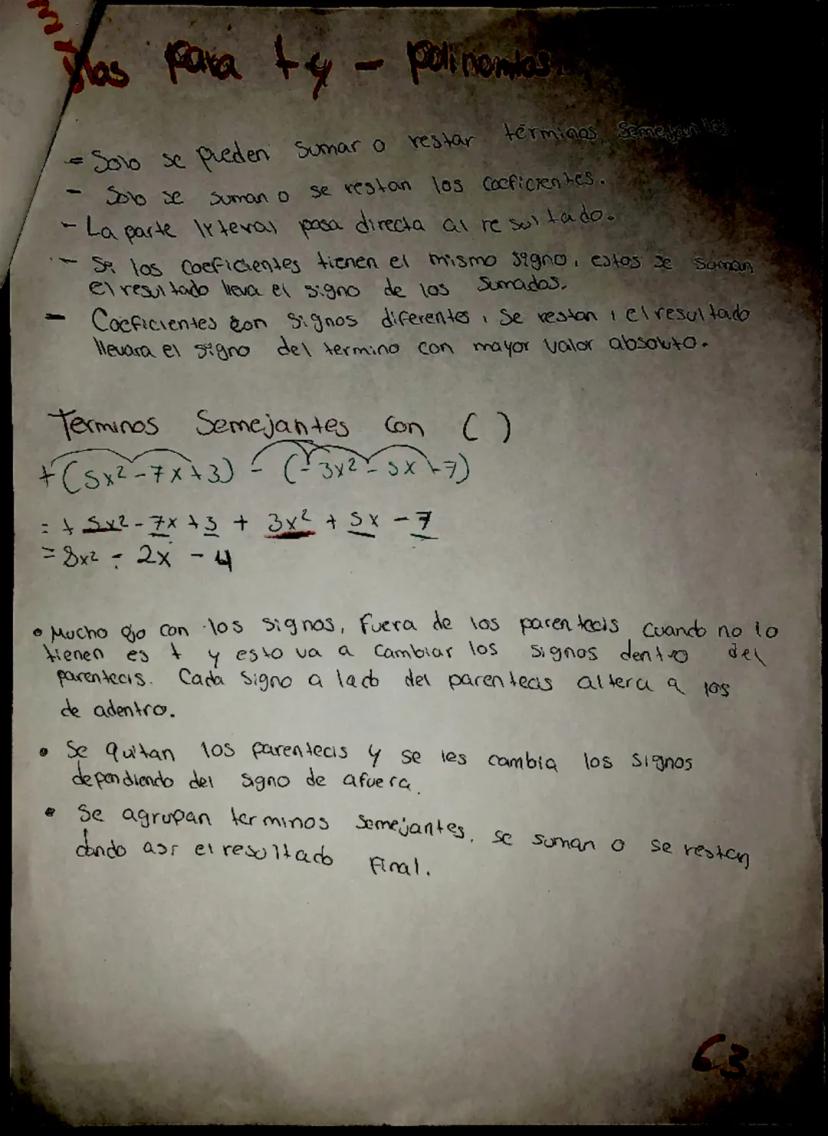 para + y - polinomios
- Solo se pueden sumar o restar términos semejantes
- Solo se suman o se restan los coeficientes.
- La parte literal pasa directa al resultado.
- Si los coeficientes tienen el mismo signo, estos se suman
el resultado lleva el signo de los sumados.
- Coeficientes con signos diferentes, se restan, el resultado
llevara el signo del termino con mayor valor absoluto.
Terminos Semejantes con ( )
+(5x²-7x+3) - (-3x²-5x+7)
= + 5x² - 7x + 3 + 3x² + 5x - 7
= 8x² - 2x - 4
• Mucho ojo con los signos, fuera de los parentecis cuando no lo
tienen es + y esto va a cambiar los signos dentro del
parentecis. Cada signo a lado del parentecis altera a los
de adentro.
• Se quitan los parentecis y se les cambia los signos
dependiendo del signo de afuera.
• Se agrupan terminos semejantes, se suman o se restan
dando asi el resultado final.
63